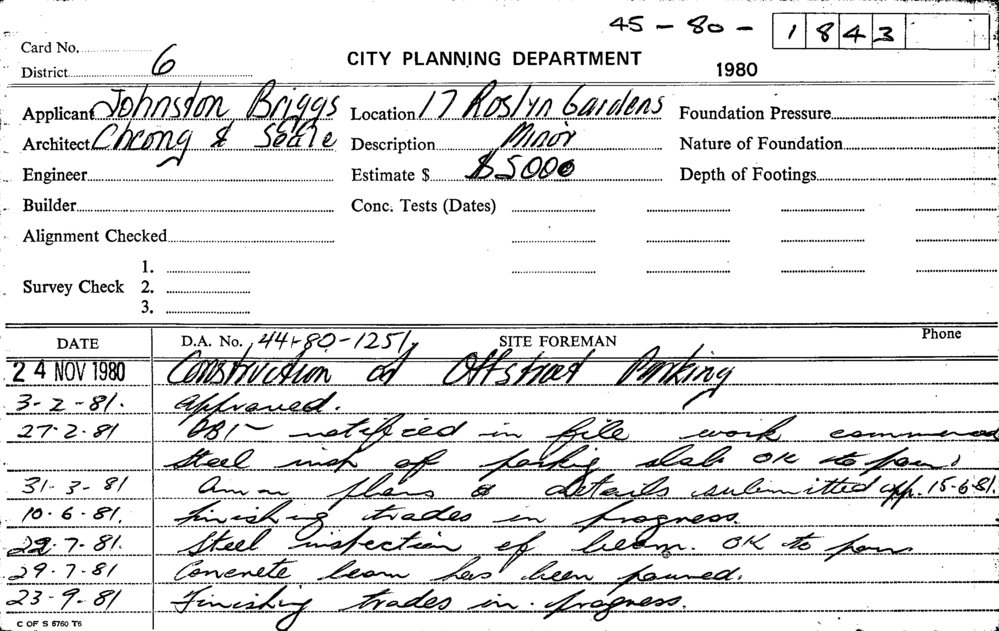 45-80-1843
Card No.
District 6
CITY PLANNING DEPARTMENT
1980
Applicant Johnston Briggs
Location 17 Roslyn Gardens
Foundation Pressure
Architect Cheong & Seale
Description Minor
Nature of Foundation
Engineer
Estimate $ $5000
Depth of Footings
Builder
Conc. Tests (Dates)
Alignment Checked
Survey Check
1.
2.
3.
DATE D.A. No. 44-80-1251 SITE FOREMAN Phone
24 NOV 1980 Construction of Offstreet Parking
3-2-81. approved.
27.2.81 notified in file work
Steel of parking slab OK to pour
31-3-81 plans & details submitted app. 15-6-81.
10-6-81. Finishing trades in progress.
22-7-81. Steel inspection of beam. OK to pour
29.7.81 Concrete beam has been poured.
23-9-81 Finishing trades in progress.
C OF S 6760 T6